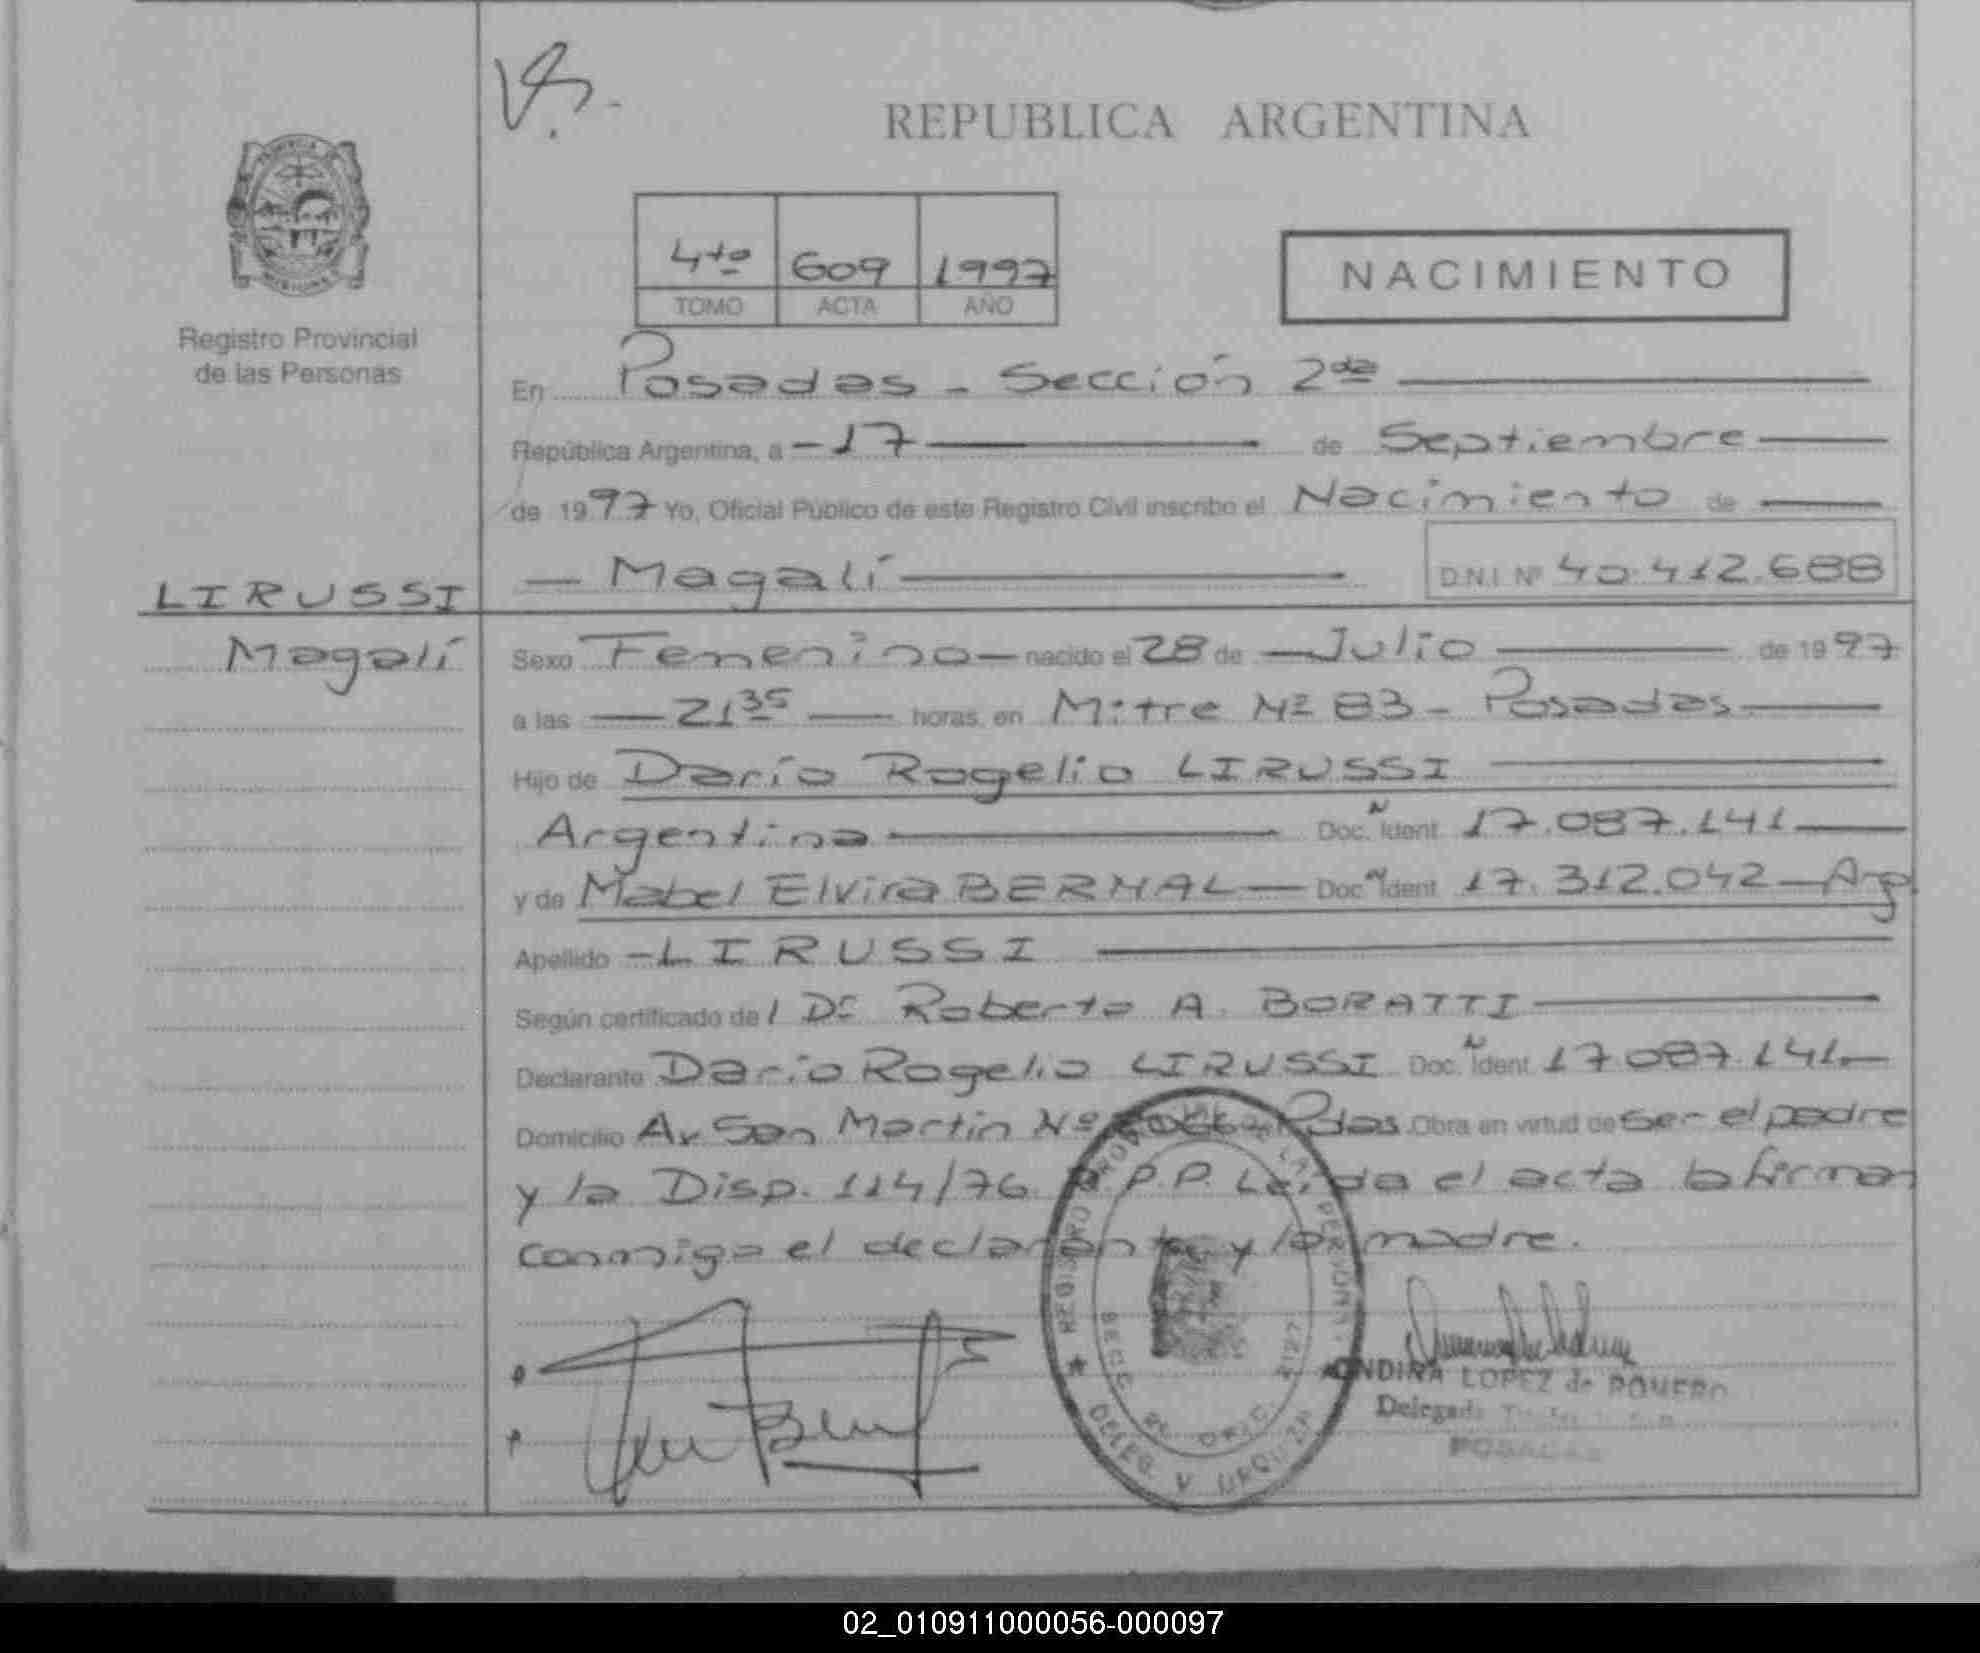 REPUBLICA ARGENTINA
4to 609 1997
TOMO ACTA AÑO
NACIMIENTO
Registro Provincial
de las Personas
En Posadas - Sección 2da
República Argentina, a - 17 de Septiembre
de 1997 Yo, Oficial Público de este Registro Civil inscribo el Nacimiento de
Magalí D.N.I. Nº 40.412.688
LIRUSSI
Magalí
Sexo Femenino nacido el 28 de Julio de 1997
a las 21 35 horas, en Mitre Nº 83 - Posadas
Hijo de Darío Rogelio LIRUSSI
Argentina Doc. N Ident. 17.087.141
y de Mabel Elvira BERNAL Doc. N Ident. 17.312.042 - Arg
Apellido LIRUSSI
Según certificado del Dr Roberto A. BORATTI
Declarante Darío Rogelio LIRUSSI Doc. N Ident. 17.087.141
Domicilio Av. San Martin Nº Pdas. Obra en virtud de ser el padre
y la Disp. 114/76 P.P. Leída el acta la firman
conmigo el declarante y la madre.
REGISTRO LAS PERSONAS
SECC
DELEG. V. URQUIZA
ONDINA LOPEZ de ROMERO
Delegada
POSADAS
02_010911000056-000097